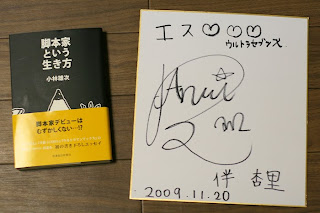 脚本家
という
生き方
小林雄次
脚本家デビューは
むずかしくない…!?
エス♡♡♡
ウルトラセブンX
伴 杏里
2009.11.20